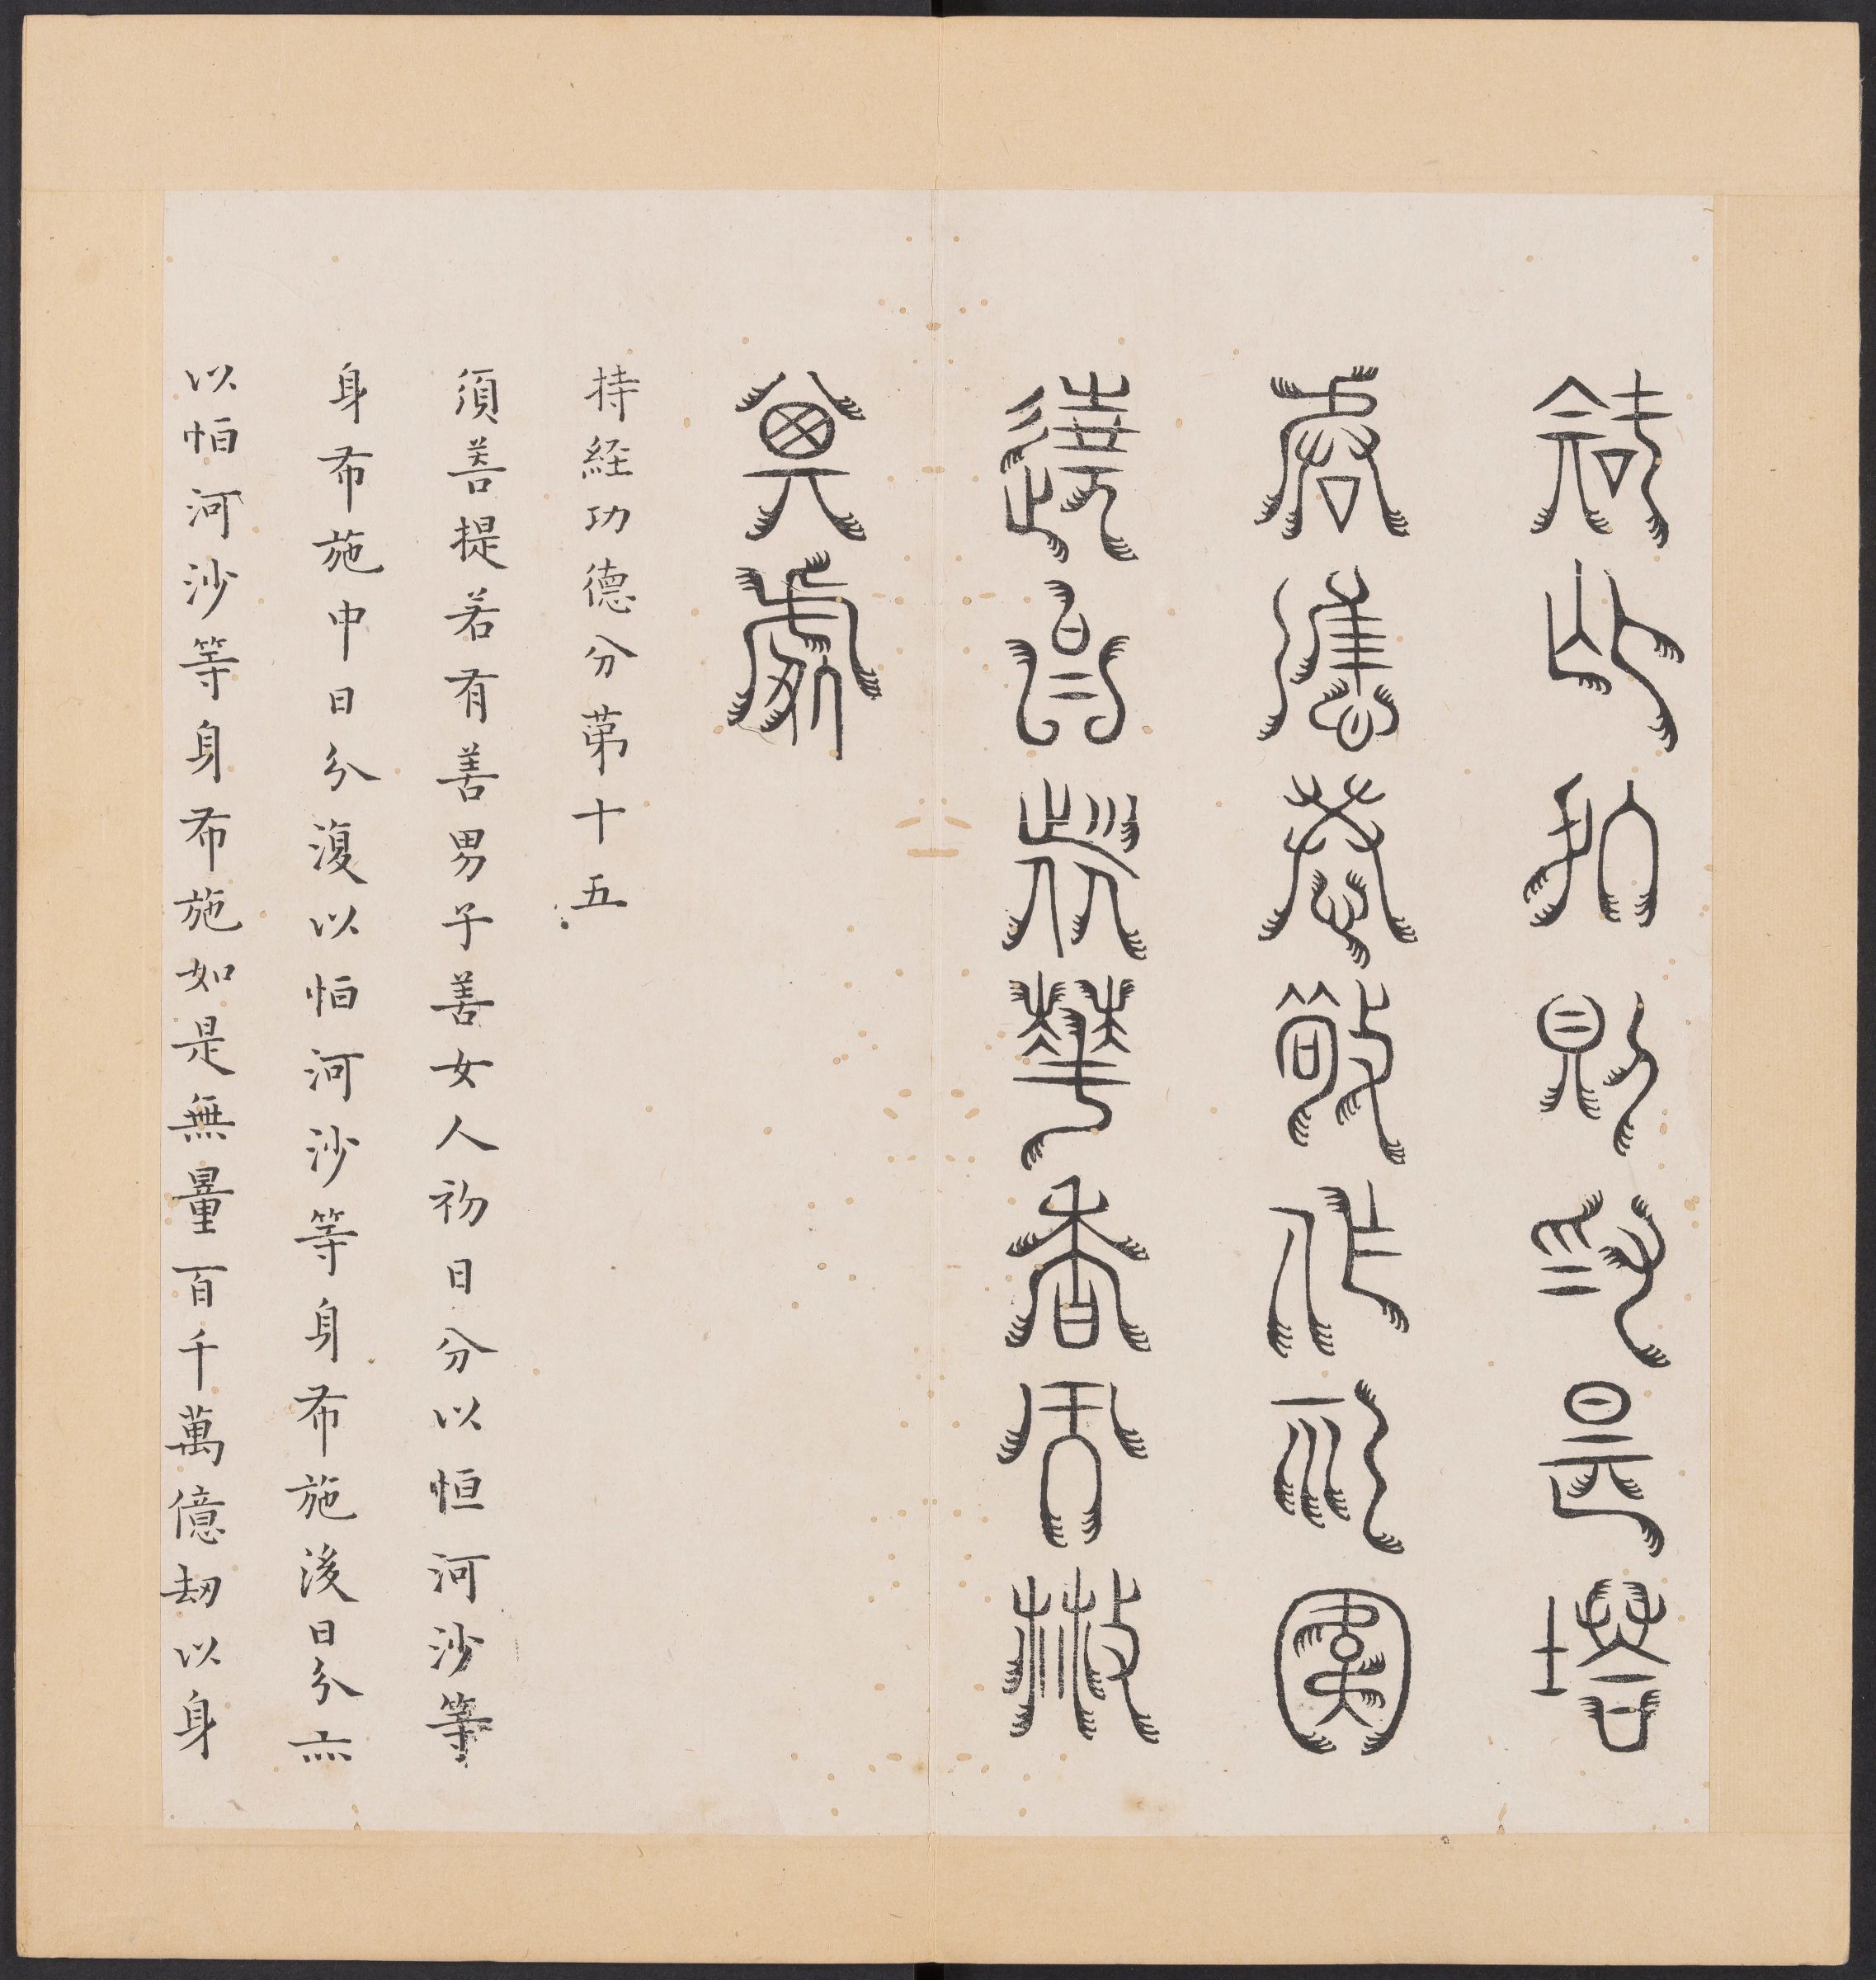 知此處則為是塔
皆應恭敬作礼圍
繞以諸華香而散
其處
持経功德分苐十五
須菩提若有善男子善女人初日分以恒河沙等
身布施中日分復以恒河沙等身布施後日分亦
以恒河沙等身布施如是無量百千萬億劫以身